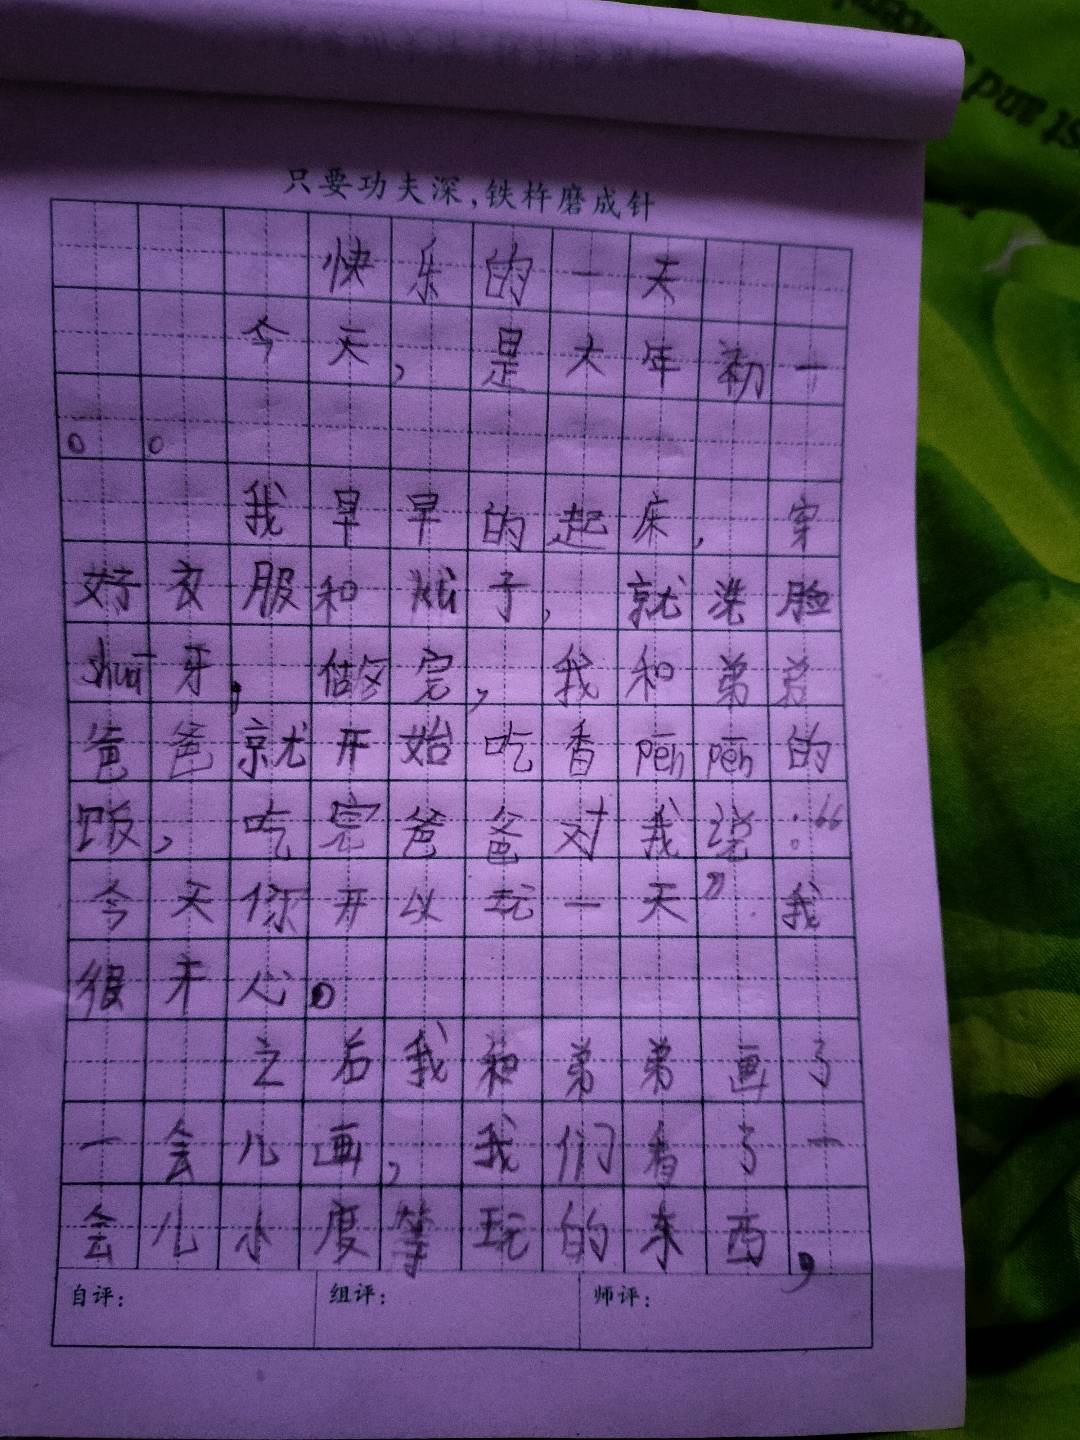 只要功夫深,铁杵磨成针
快乐的一天
今天,是大年初一
。。
我早早的起床,穿
好衣服和 子,就洗脸
shuā牙,做完,我和弟弟
爸爸就开始吃香pēn pēn的
饭,吃完爸爸对我说:“
今天你开以玩一天”我
很开心。
之后我和弟弟画了
一会儿画,我们看了一
会儿小度等玩的东西,
自评: 组评: 师评:
st and